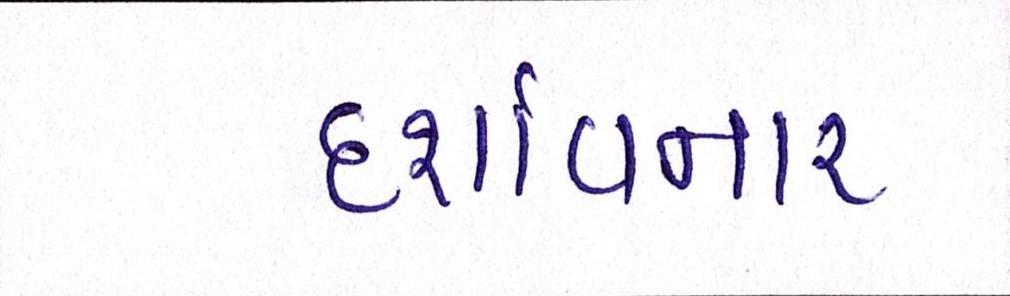 દર્શાવનાર